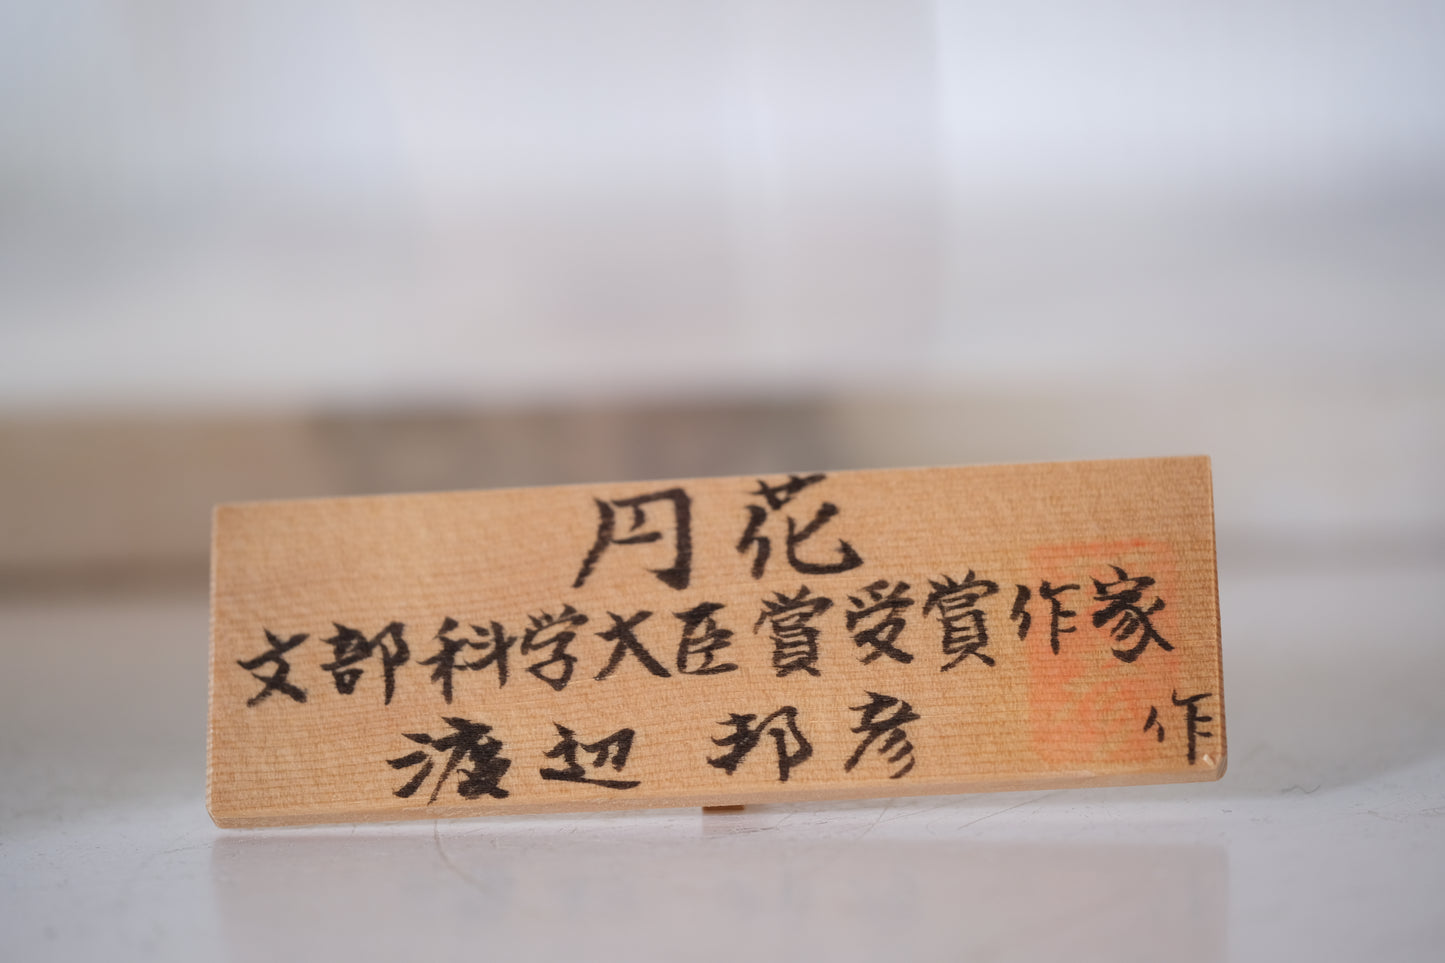 円花
文部科学大臣賞受賞作家
渡辺邦彦 作